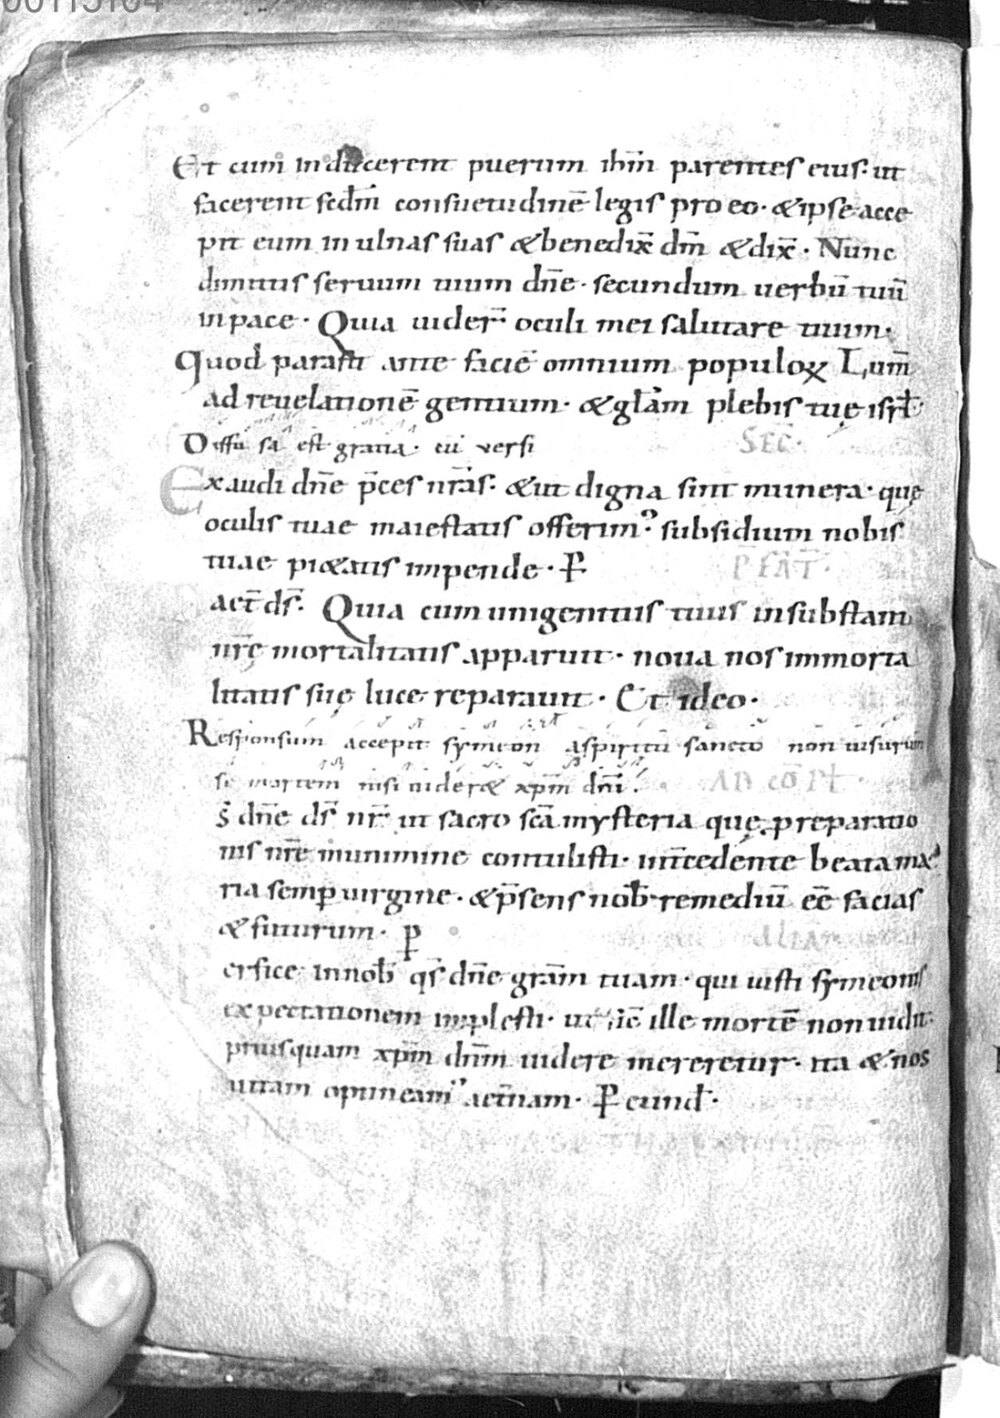 Et cum inducerent puerum ihm̄ parentes eius· ut
facerent scd̄m consuetudinē legis pro eo· & ipse acce
pit eum in ulnas suas & benedix̄ dm̄ & dix̄· Nunc
dimittis seruum tuum dn̄e· secundum uerbū tuū
in pace· Quia uider̄ oculi mei salutare tuum·
Quod parasti ante faciē omnium populoꝝ Lum̄
ad reuelationē gentium· & gl̄am plebis tuę isrl̄·
Diffu sa est gratia· cū versi SEC̄·
Exaudi dn̄e p̄ces nr̄as· & ut digna sint munera· quę
oculis tuae maiestatis offerim᾽ subsidium nobis
tuae pi&atis impende· P̄ P̄FAT̄·
aet̄ ds̄· Quia cum unigenitus tuus in substan
nr̄ę mortalitatis apparuit· noua nos immorta
litatis suę luce reparauit· Et ideo·
Responsum accepit symeon a spiritu sancto non uisurum
se mortem nisi uider& xpm̄ dnī· AD CŌPL̄
S̄ dn̄e ds̄ nr̄ ut sacro sc̄a mysteria quę p reparatio
nis nr̄e munimine contulisti· int̄cedente beata ma
ria semp̄ uirgine· & p̄sens nob̄ remediū eē facias
& futurum· p̄
erfice in nob̄ qs̄ dn̄e gr̄am tuam· qui iusti symeonis
expectationem implesti· ut ille mortē non uidit
priusquam xpm̄ dnm̄ uidere mereretur· ita & nos
uitam optineam᾽ aet̄nam· P̄ eund̄·